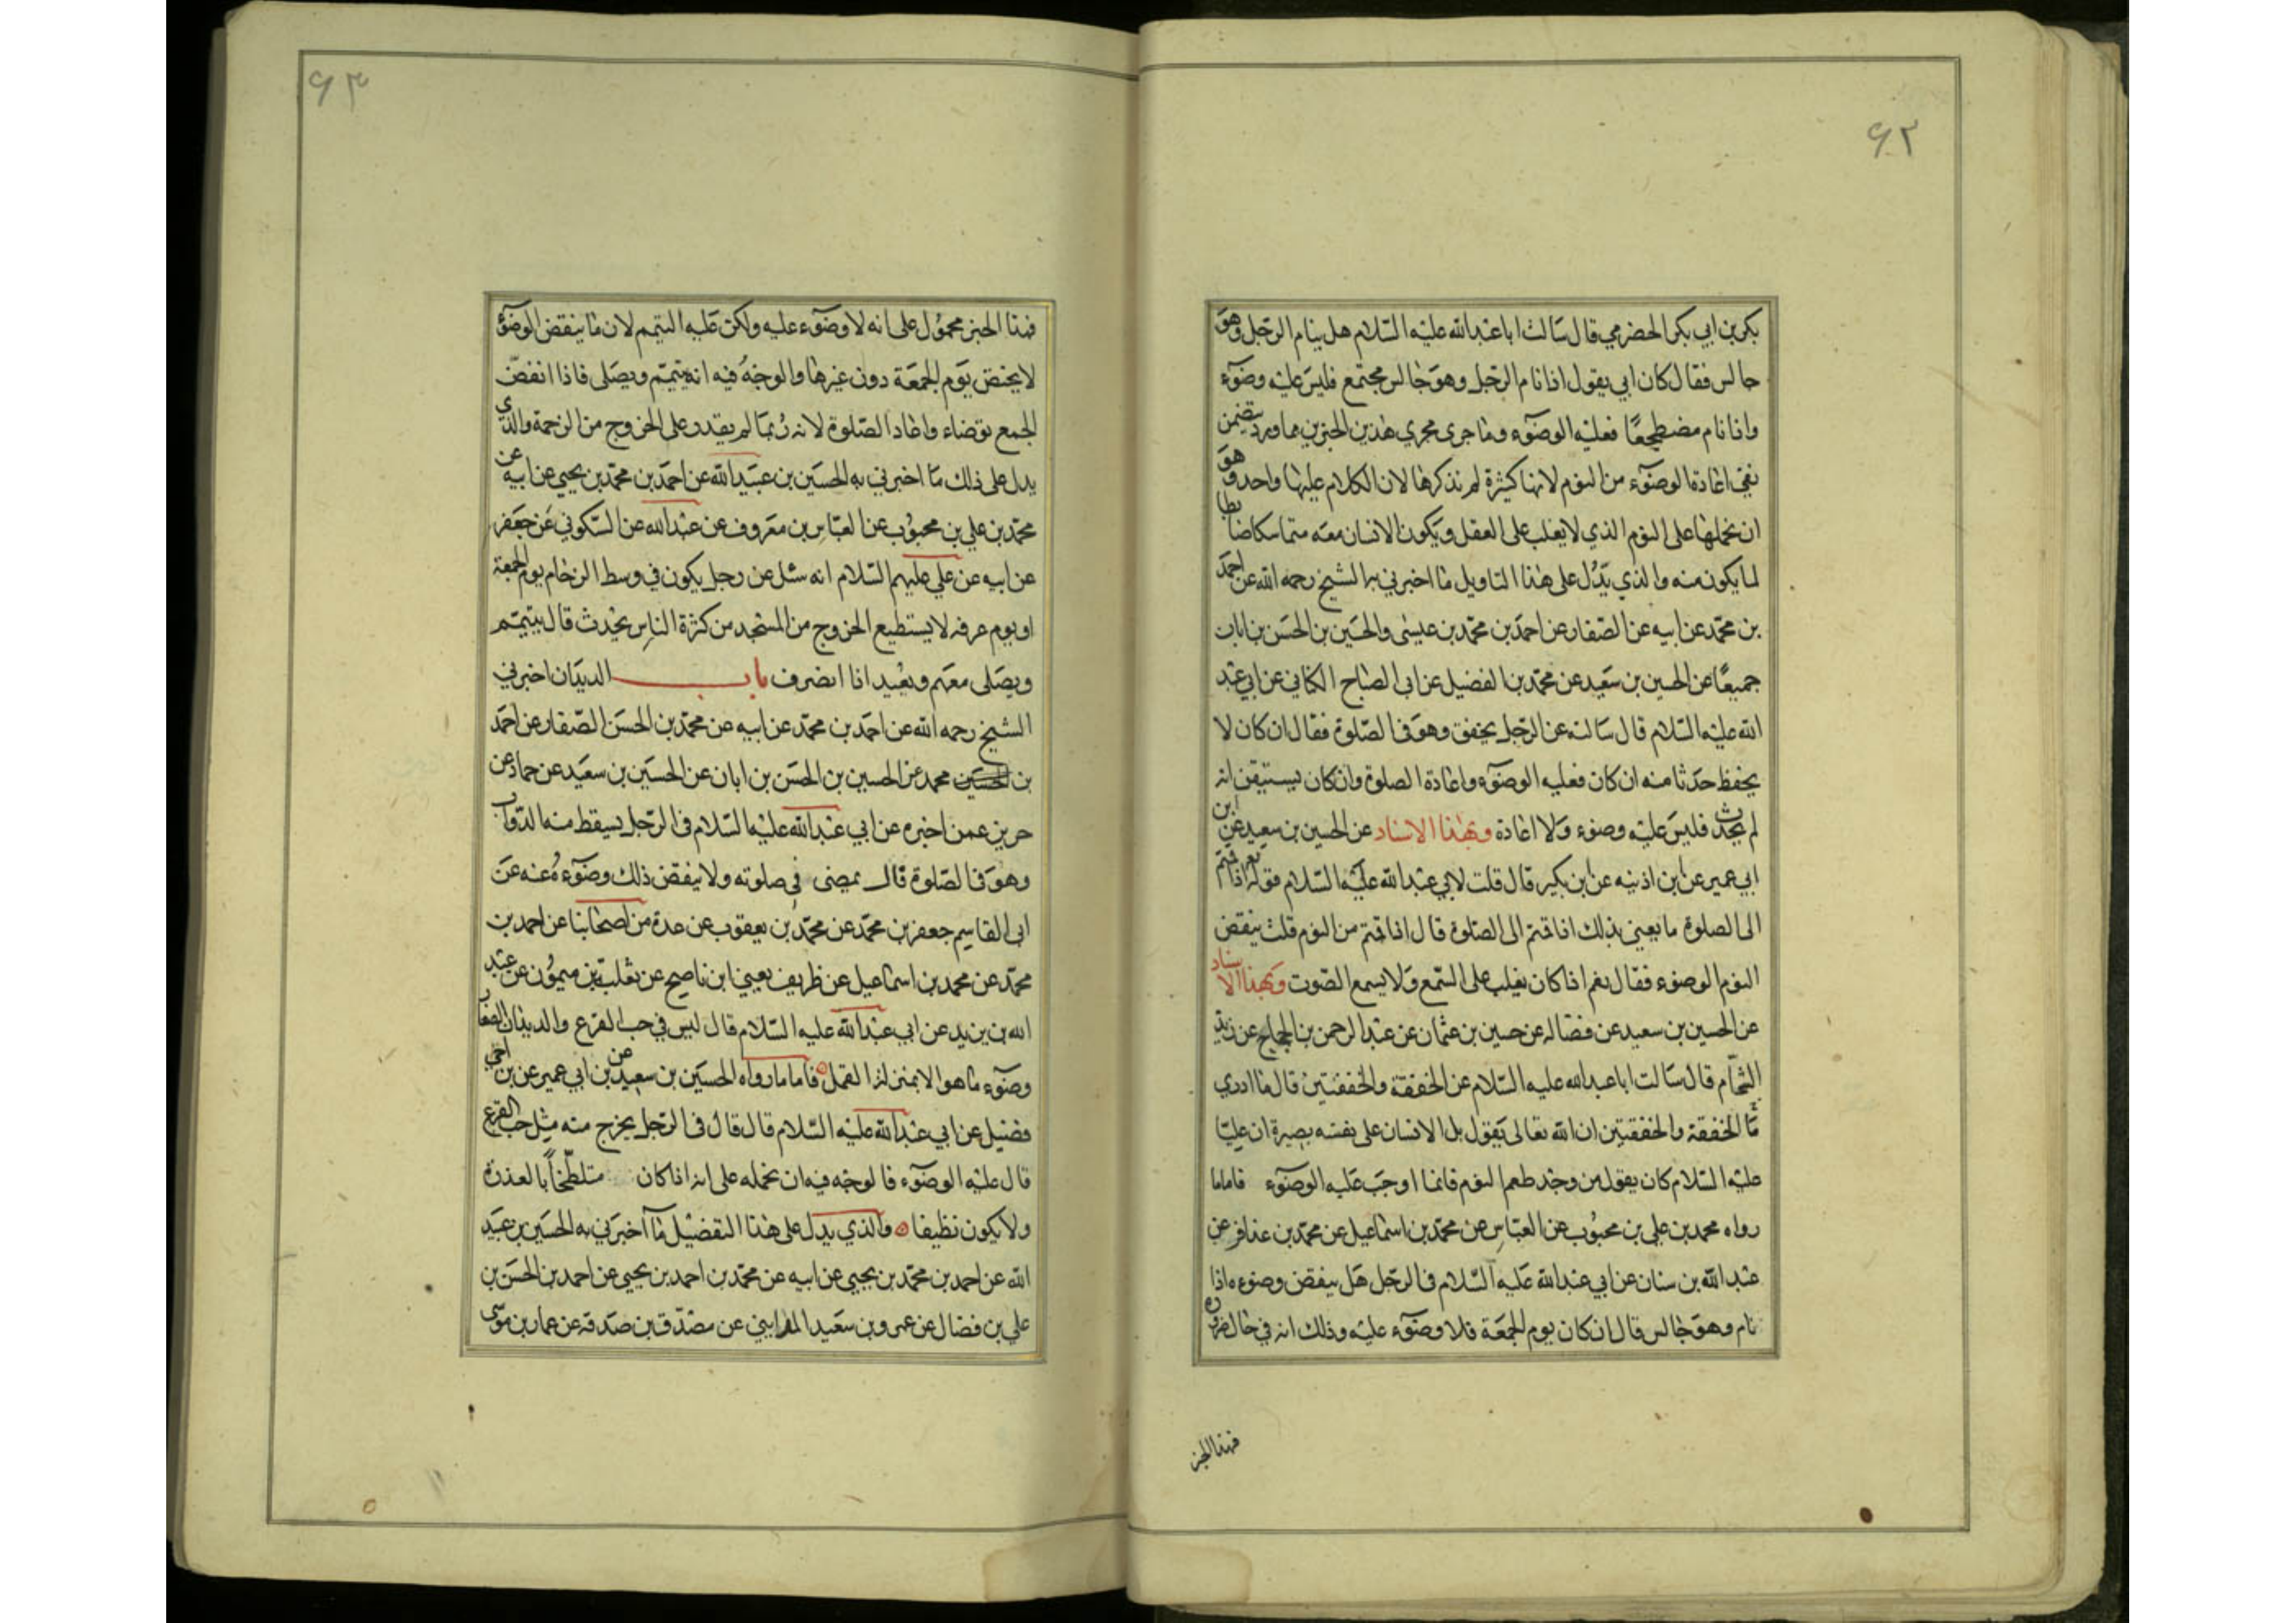 ۶۲
بكر بن ابي بكر الحضرمي قال سالت ابا عبدالله عليه السّلام هل ينام الرّجل وهو
جالس فقال كان ابي يقول اذا نام الرّجل وهو جالس مجتمع فليس عليه وضوء
واذا نام مضطجعًا فعليه الوضوء وما جرى مجرى هذين الخبرين مما ورد يتضمن
نفي اعادة الوضوء من النوم لانها كثيرة لم نذكرها لان الكلام عليها واحد وهو
ان نحملها على النوم الذي لا يغلب على العقل ويكون الانسان معه متماسكا ضابطا
لما يكون منه والذي يدل على هذا التاويل ما اخبرني به الشيخ رحمه الله عن احمد
بن محمّد عن ابيه عن الصّفار عن احمد بن محمّد بن عيسى والحسين بن الحسن بن ابان
جميعًا عن الحسين بن سعيد عن محمّد بن الفضيل عن ابي الصّباح الكناني عن ابي عبد
الله عليه السّلام قال سالته عن الرّجل يخفق وهو في الصّلوة فقال ان كان لا
يحفظ حدثا منه ان كان فعليه الوضوء واعادة الصلوة وان كان يستيقن انه
لم يحدث فليس عليه وضوء ولا اعادة وبهذا الاسناد عن الحسين بن سعيد عن ابن
ابي عمير عن ابن اذنيه عن ابن بكير قال قلت لابي عبدالله عليه السّلام قوله تع اذا قمتم
الى الصلوة ما يعني بذلك اذا قمتم الى الصّلوة قال اذا قمتم من النوم قلت ينقض
النوم الوضوء فقال نعم اذا كان يغلب على السّمع ولا يسمع الصّوت وبهذا الاسناد
عن الحسين بن سعيد عن فضاله عن حسين بن عثمان عن عبد الرحمن بن الحجاج عن زيد
الشّحام قال سالت ابا عبدالله عليه السّلام عن الخفقة والخفقتين قال ما ادري
ما الخفقة والخفقتين ان الله تعالى يقول بل الانسان على نفسه بصيرة ان عليّا
عليه السّلام كان يقول من وجد طعم النوم فانما اوجب عليه الوضوء فاما ما
رواه محمد بن علي بن محبوب عن العبّاس عن محمّد بن اسماعيل عن محمّد بن عذافر عن
عبد الله بن سنان عن ابي عبدالله عليه السّلام في الرّجل هل ينقض وضوءه اذا
نام وهو جالس قال ان كان يوم الجمعة فلا وضوء عليه وذلك انه في حال ضرورة
فهذا الخبر
۶۳
فهذا الخبر محمول على انه لا وضوء عليه ولكن عليه التيمم لان ما ينقض الوضوء
لا يختص يوم الجمعة دون غيرها والوجه فيه انه يتيمّم ويصلى فاذا انفضّ
الجمع توضاء واعاد الصّلوة لانه ربما لم يقدر على الخروج من الزحمة والذي
يدل على ذلك ما اخبرني به الحسين بن عبيدالله عن احمد بن محمّد بن يحيى عن ابيه عن
محمّد بن علي بن محبوب عن العبّاس بن معروف عن عبدالله عن السّكوني عن جعفر
عن ابيه عن علي عليهم السّلام انه سئل عن رجل يكون في وسط الزحام يوم الجمعة
او يوم عرفه لا يستطيع الخروج من المسجد من كثرة الناس يحدث قال يتيمّم
ويصلى معهم ويعيد اذا انصرف باب الديدان اخبرني
الشيخ رحمه الله عن احمد بن محمّد عن ابيه عن محمّد بن الحسن الصّفار عن احمد
بن محمد عن الحسين بن الحسن بن ابان عن الحسين بن سعيد عن حماد عن
حريز عمن اخبره عن ابي عبدالله عليه السّلام في الرّجل يسقط منه الدّواب
وهو في الصّلوة قال يمضى في صلوته ولا ينقض ذلك وضوءه عنه عن
ابي القاسم جعفر بن محمّد عن محمّد بن يعقوب عن عدة من اصحابنا عن احمد بن
محمّد عن محمد بن اسماعيل عن ظريف يعني ابن ناصح عن ثعلبة بن ميمون عن عبد
الله بن يزيد عن ابي عبدالله عليه السّلام قال ليس في حب القرع والديدان الصغار
وضوء ما هو الا بمنزلة القمل فاما ما رواه الحسين بن سعيد عن بن ابي عمير عن بن اخى
فضيل عن ابي عبدالله عليه السّلام قال قال في الرّجل يخرج منه مثل حب القرع
قال عليه الوضوء فالوجه فيه ان نحمله على انه اذا كان متلطّخاً بالعذرة
ولا يكون نظيفا والذي يدل على هذا التفضيل ما اخبرني به الحسين بن عبيد
الله عن احمد بن محمّد بن يحيى عن ابيه عن محمّد بن احمد بن يحيى عن احمد بن الحسن بن
علي بن فضال عن عمرو بن سعيد المدايني عن مصدّق بن صدقه عن عمار بن موسى